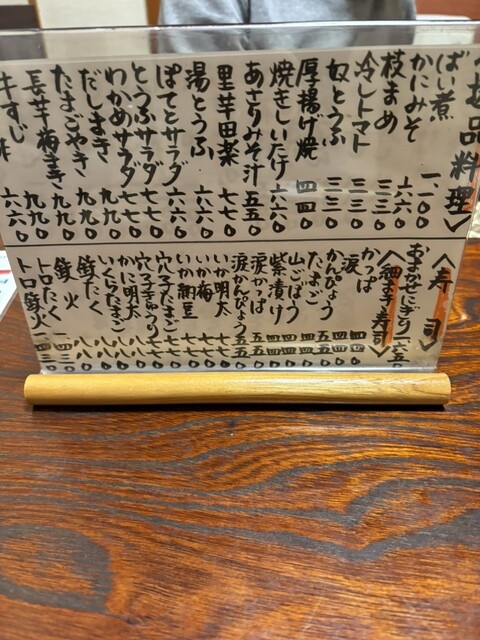 品料理〉
ばい煮 一、一〇〇
かにみそ 六六〇
枝まめ 三三〇
冷しトマト 三三〇
奴とうふ 三三〇
厚揚げ焼 四四〇
焼きしいたけ 六六〇
あさりみそ汁 五五〇
里芋田楽 七七〇
湯とうふ 六六〇
ぽてとサラダ 六六〇
とうふサラダ 七七〇
わかめサラダ 七七〇
だしまき 九九〇
たまごやき 九九〇
長芋梅 九九〇
牛すじ 六六〇
〈寿司〉
おまかせにぎり 一六五〇
〈細まき寿司〉
かっぱ 四四〇
涙 四四〇
かんぴょう 四四〇
たまご 五五〇
山ごぼう 四四〇
紫漬け 四四〇
涙かっぱ 五五〇
涙かんぴょう 五五〇
いか明太 七七〇
いか梅 七七〇
いか納豆 七七〇
穴子たまご 七七〇
穴子きゅうり 七七〇
かに明太 八八〇
いくらたまご 八八〇
鉄たく 八八〇
鉄火
トロたく 一四三〇
トロ鉄火 一四三〇